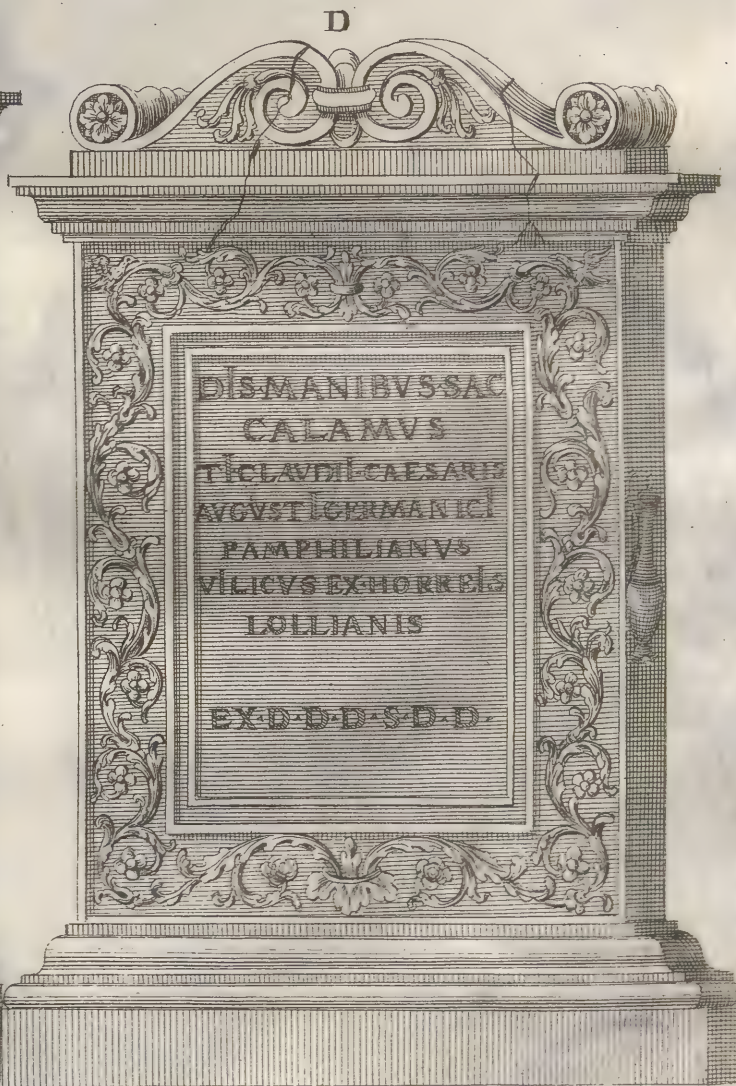 D
DIS·MANIBVS·SAC
CALAMVS
TI·CLAVDII·CAESARIS
AVGVSTI GERMANICI
PAMPHILIANVS
VILICVS EX·HORREIS
LOLLIANIS
EX·D·D·D·S·D·D·